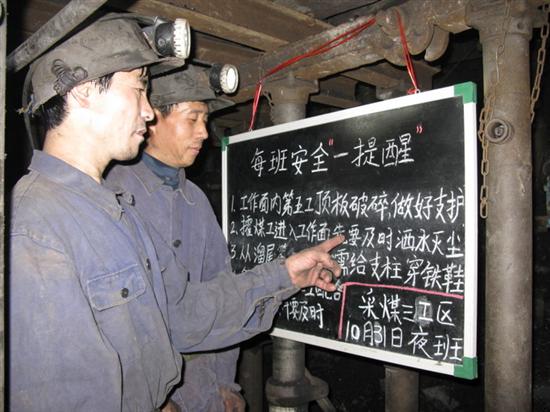 每班安全"一提醒"
1. 工作面内第五工顶板破碎,做好支护
2. 攉煤工进入工作面先要及时洒水灭尘
3. 从溜尾 需给支柱穿铁鞋
要及时
采煤三工区
10月31日夜班